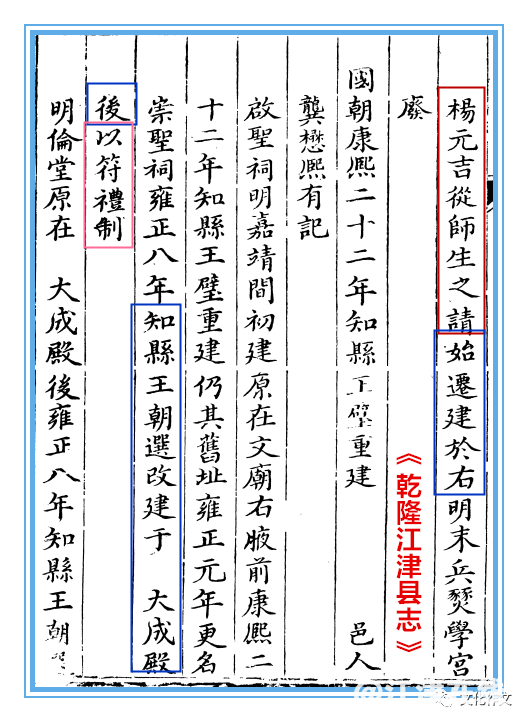 楊元吉從師生之請始遷建於右明末兵燹學宮
廢
國朝康熙二十二年知縣王璧重建 邑人
龔懋熙有記
啟聖祠明嘉靖間初建原在文廟右腋前康熙二
十二年知縣王璧重建仍其舊址雍正元年更名
崇聖祠雍正八年知縣王朝選改建于 大成殿
後以符禮制
明倫堂原在 大成殿後雍正八年知縣王朝
《乾隆江津县志》